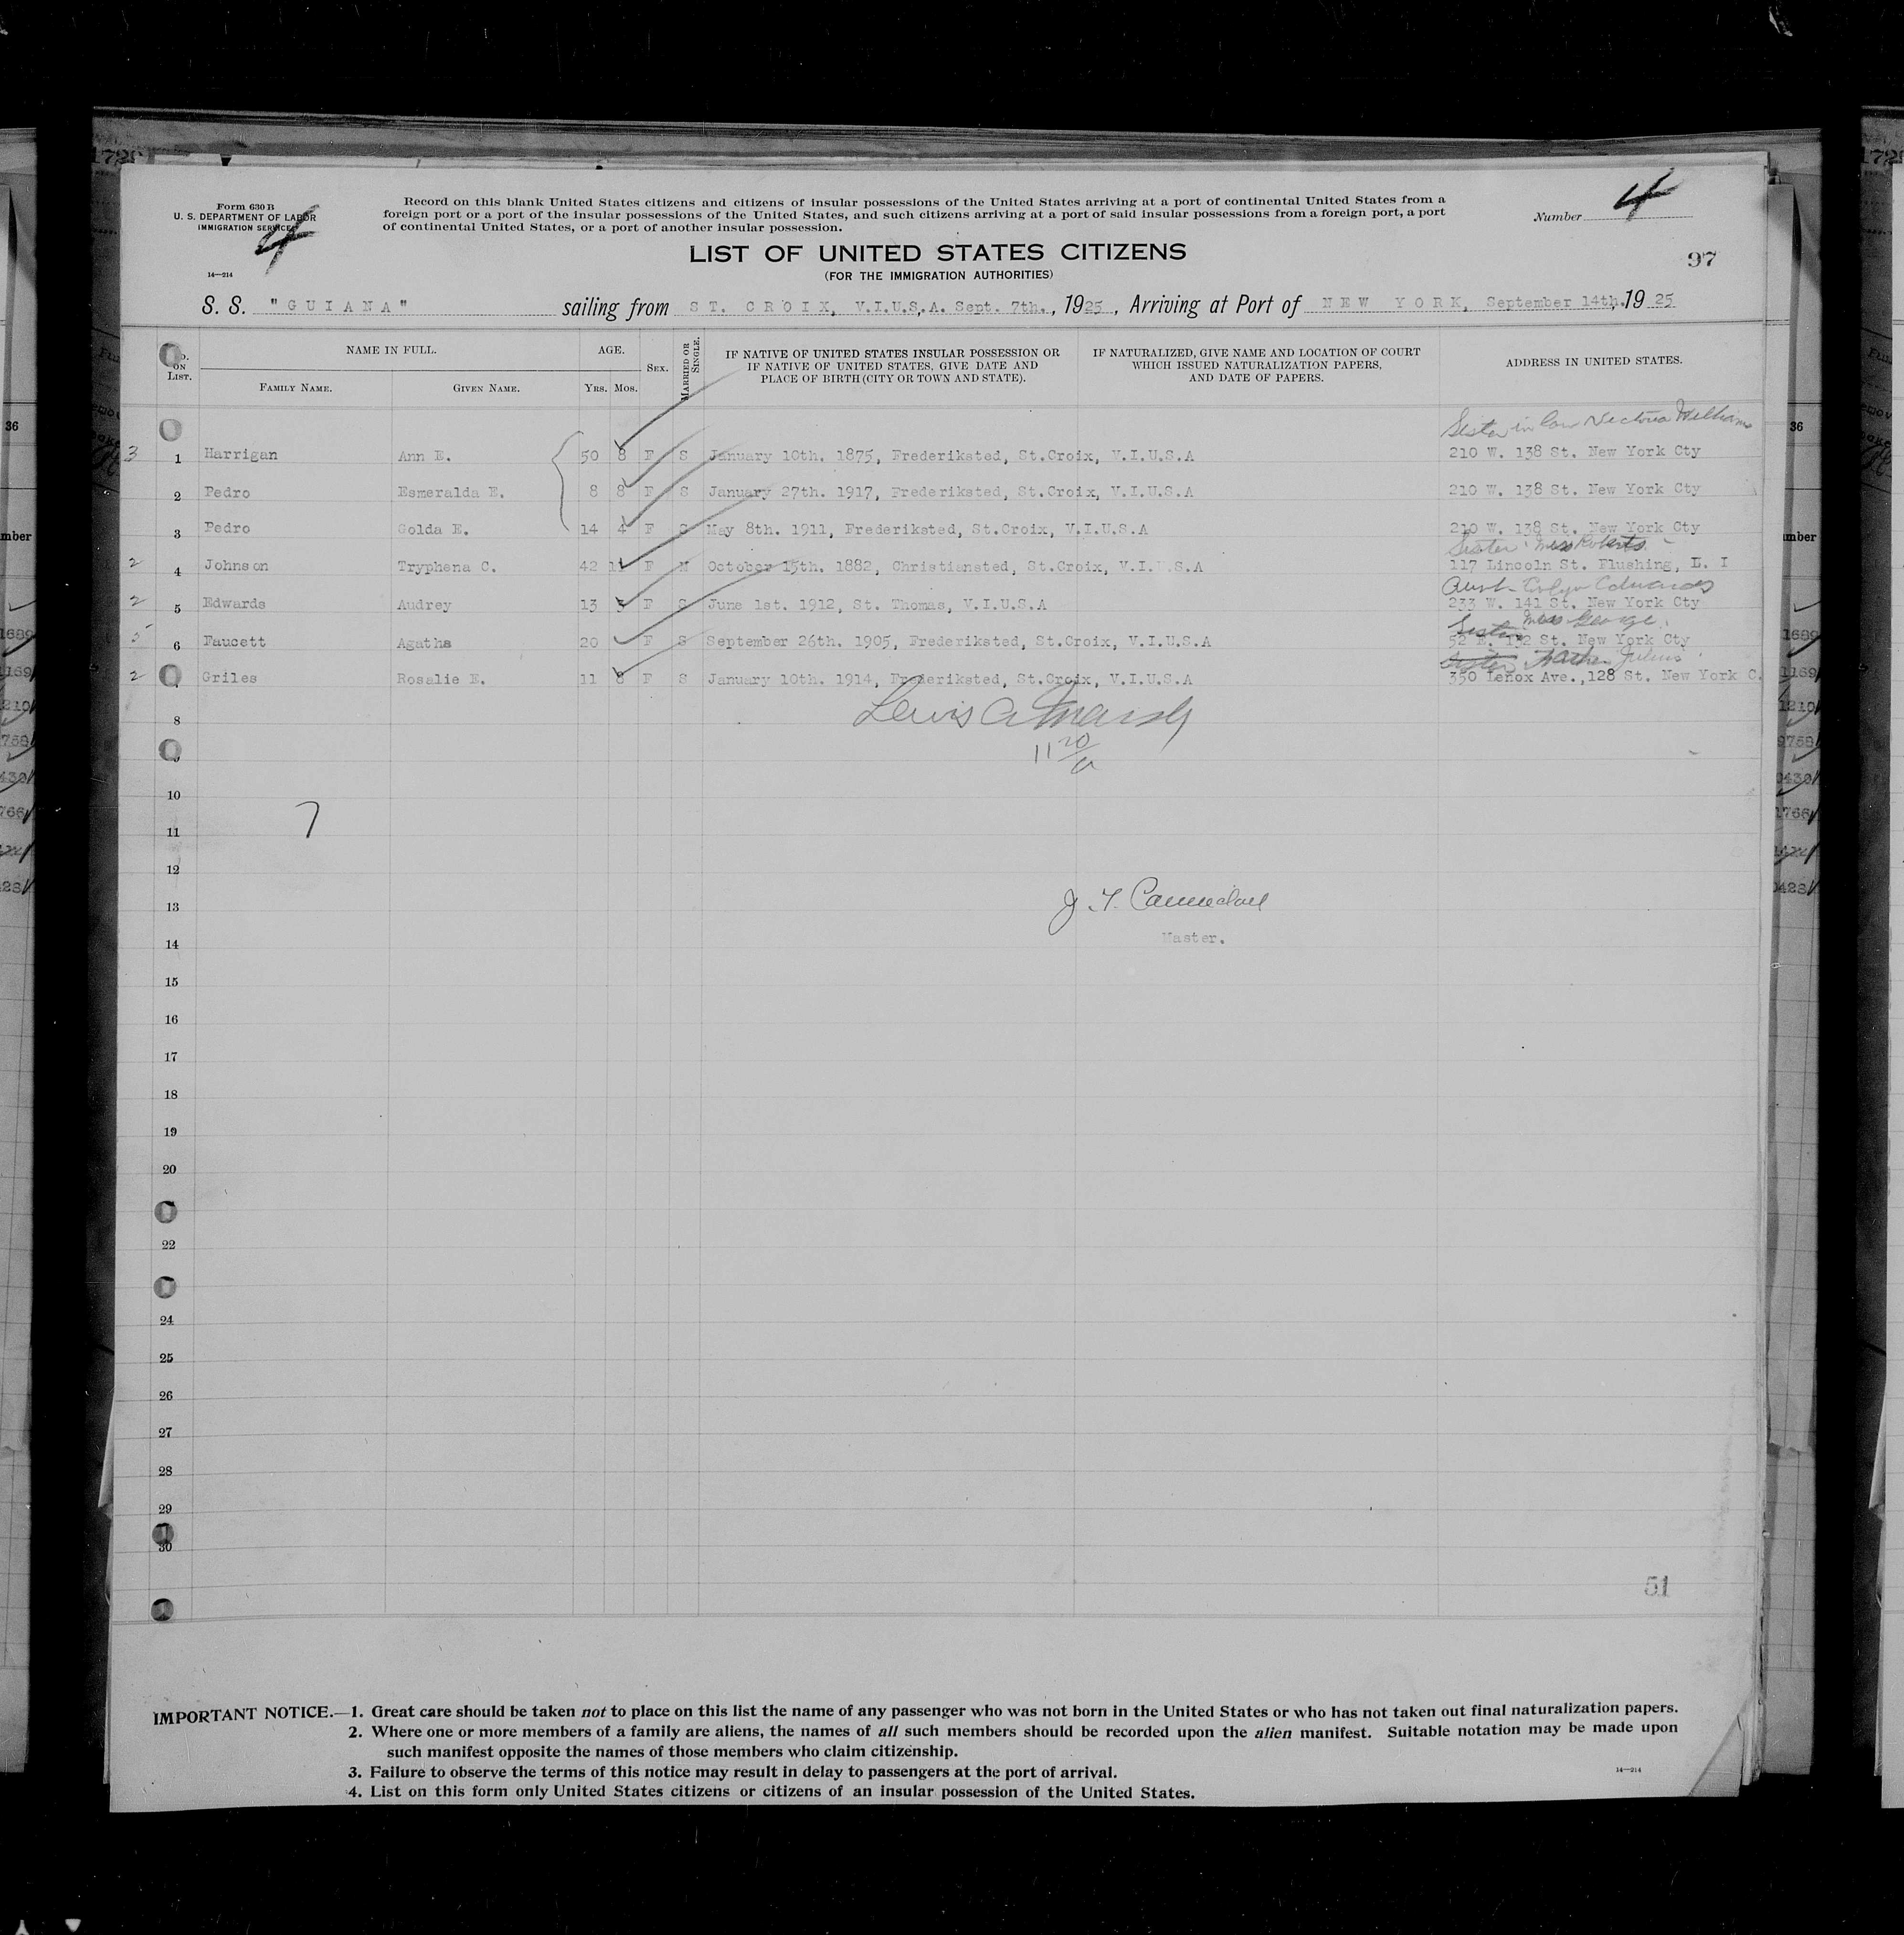 Form 630 B
U. S. DEPARTMENT OF LABOR
IMMIGRATION SERVICE
4
14—214
Record on this blank United States citizens and citizens of insular possessions of the United States arriving at a port of continental United States from a
foreign port or a port of the insular possessions of the United States, and such citizens arriving at a port of said insular possessions from a foreign port, a port
of continental United States, or a port of another insular possession.
Number 4
LIST OF UNITED STATES CITIZENS
(FOR THE IMMIGRATION AUTHORITIES)
97
S. S. "GUIANA" sailing from ST. CROIX, V.I.U.S.A. Sept. 7th., 1925, Arriving at Port of NEW YORK, September 14th. 1925
No. ON LIST.
NAME IN FULL.
FAMILY NAME. GIVEN NAME.
AGE.
YRS. MOS.
SEX.
MARRIED OR SINGLE.
IF NATIVE OF UNITED STATES INSULAR POSSESSION OR
IF NATIVE OF UNITED STATES, GIVE DATE AND
PLACE OF BIRTH (CITY OR TOWN AND STATE).
IF NATURALIZED, GIVE NAME AND LOCATION OF COURT
WHICH ISSUED NATURALIZATION PAPERS,
AND DATE OF PAPERS.
ADDRESS IN UNITED STATES.
Sister in law
3 1 Harrigan Ann E. 50 8 F S January 10th. 1875, Frederiksted, St.Croix, V.I.U.S.A 210 W. 138 St. New York Cty
2 Pedro Esmeralda E. 8 8 F S January 27th. 1917, Frederiksted, St.Croix, V.I.U.S.A 210 W. 138 St. New York Cty
3 Pedro Golda E. 14 4 F S May 8th. 1911, Frederiksted, St.Croix, V.I.U.S.A 210 W. 138 St. New York Cty
Sister Miss Roberts
2 4 Johnson Tryphena C. 42 11 F M October 15th. 1882, Christiansted, St.Croix, V.I.U.S.A 117 Lincoln St. Flushing, L. I
Aunt Edwards
2 5 Edwards Audrey 13 3 F S June 1st. 1912, St. Thomas, V.I.U.S.A 233 W. 141 St. New York Cty
Sister Miss George
5 6 Faucett Agatha 20 F S September 26th. 1905, Frederiksted, St.Croix, V.I.U.S.A 52 E. 132 St. New York Cty
Sister Julius
2 Griles Rosalie E. 11 8 F S January 10th. 1914, Frederiksted, St.Croix, V.I.U.S.A 350 Lenox Ave.,128 St. New York C.
8
Lewis A
11 20
10
7
11
12
13
J. F.
Master.
14
15
16
17
18
19
20
22
24
25
26
27
28
29
30
51
IMPORTANT NOTICE.—1. Great care should be taken not to place on this list the name of any passenger who was not born in the United States or who has not taken out final naturalization papers.
2. Where one or more members of a family are aliens, the names of all such members should be recorded upon the alien manifest. Suitable notation may be made upon
such manifest opposite the names of those members who claim citizenship.
3. Failure to observe the terms of this notice may result in delay to passengers at the port of arrival.
4. List on this form only United States citizens or citizens of an insular possession of the United States.
14—214